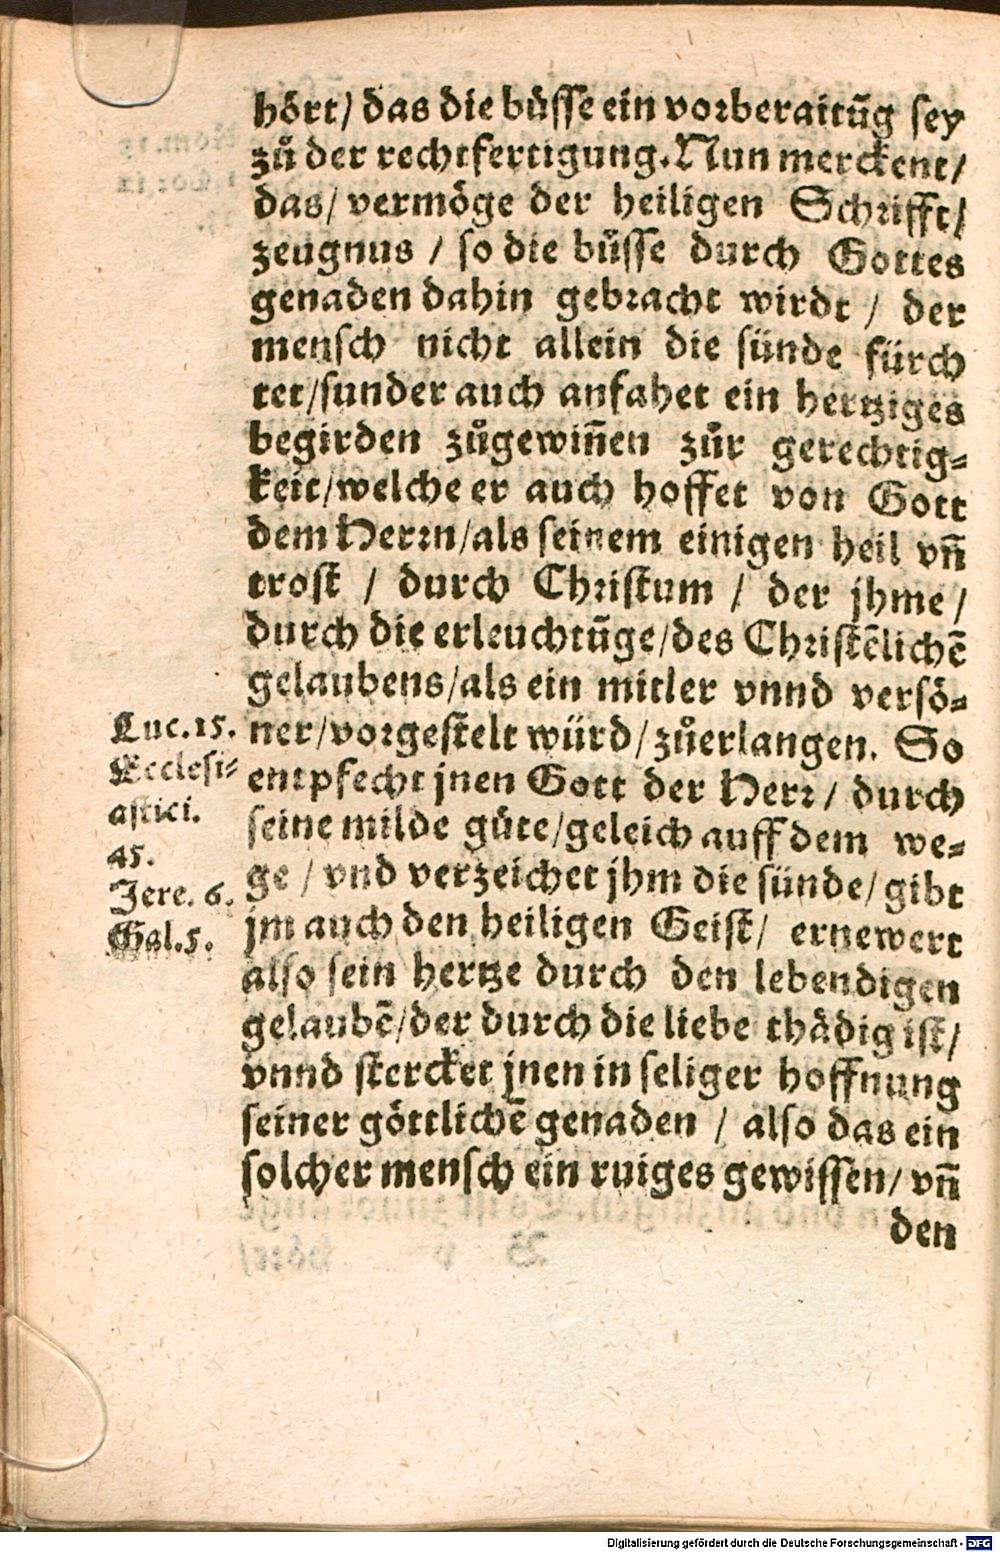 hört/ das die bůsse ein vorberaitūg sey
zů der rechtfertigung. Nun merckent/
das/ vermöge der heiligen Schrifft/
zeugnus / so die bůsse durch Gottes
genaden dahin gebracht wirdt / der
mensch nicht allein die sünde fürch
tet/sunder auch anfahet ein hertziges
begirden zůgewiñen zůr gerechtig⸗
keit/welche er auch hoffet von Gott
dem Herrn/als seinem einigen heil vñ
trost / durch Christum / der jhme/
durch die erleuchtūge/des Christēlichē
gelaubens/als ein mitler vnnd versö⸗
ner/vorgestelt würd/zůerlangen. So
entpfecht jnen Gott der Herr/ durch
seine milde gůte/geleich auff dem we⸗
ge / vnd verzeichet jhm die sünde/gibt
jm auch den heiligen Geist/ ernewert
also sein hertze durch den lebendigen
gelaubē/der durch die liebe thådig ist/
vnnd stercket jnen in seliger hoffnung
seiner göttlichē genaden / also das ein
solcher mensch ein ruiges gewissen/ vñ
den
Luc. 15.
Ecclesi⸗
astici.
45.
Jere. 6.
Gal. 5.
Digitalisierung gefördert durch die Deutsche Forschungsgemeinschaft - DFG